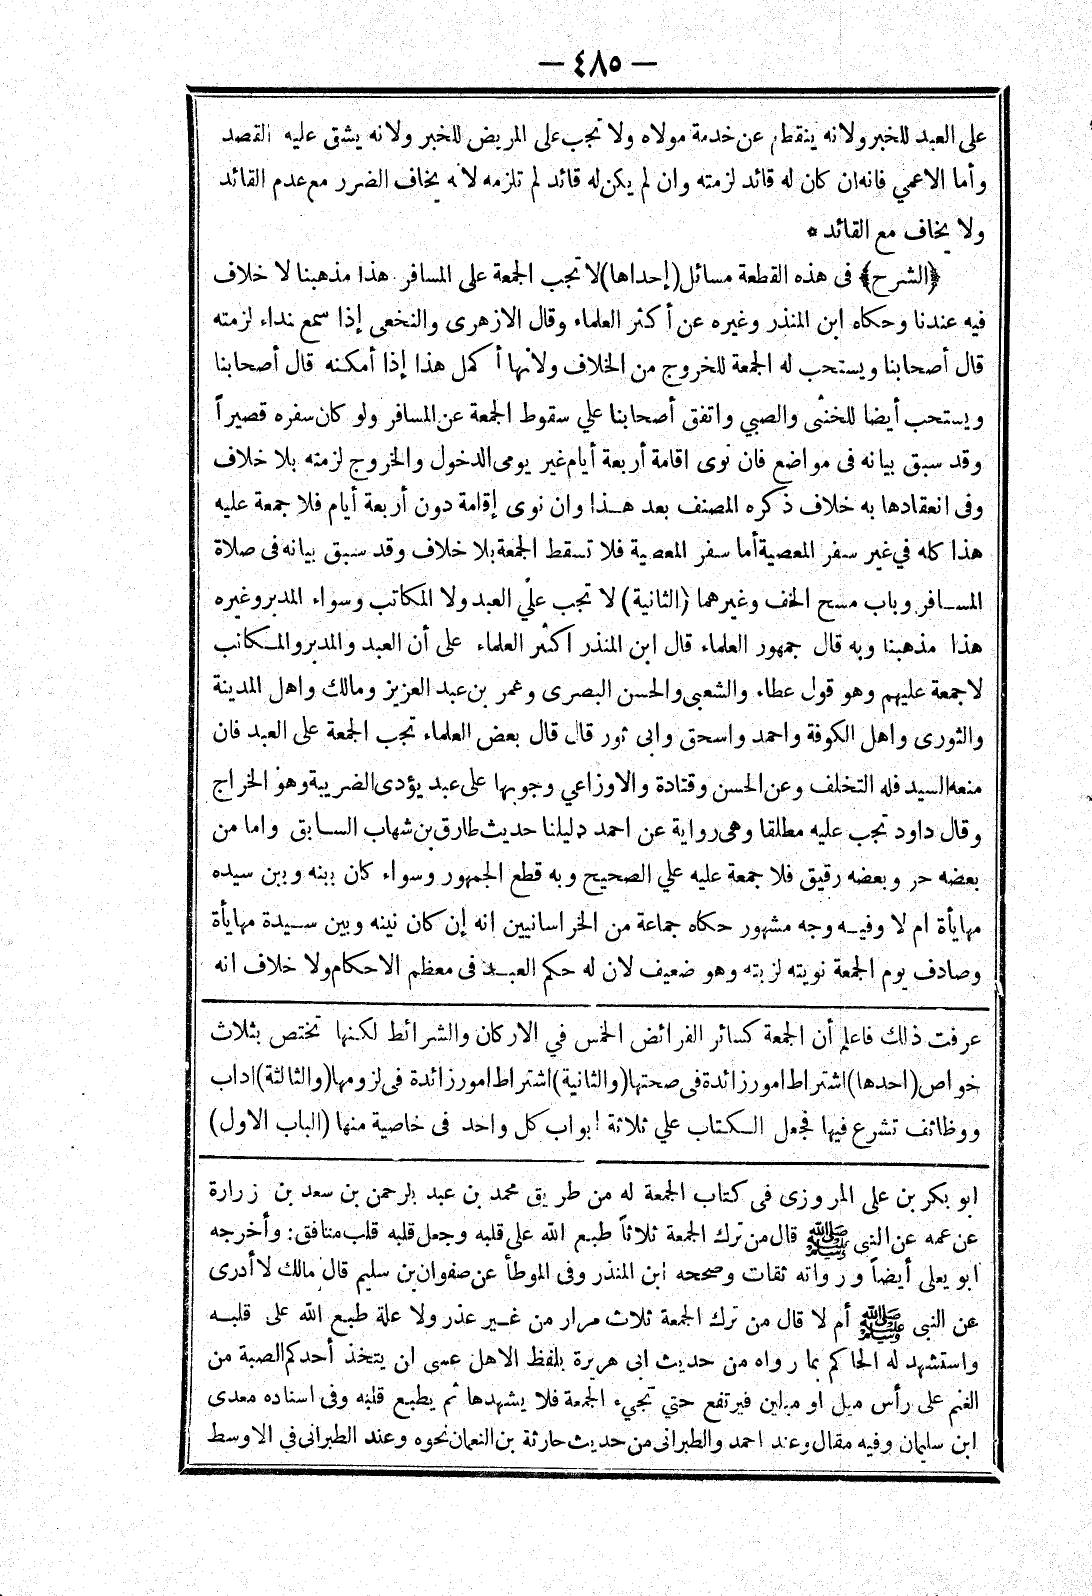 — ٤٨٥ —
على العبد للخبر ولانه ينقطع عن خدمة مولاه ولا تجب على المريض للخبر ولانه يشق عليه القصد
وأما الاعمي فانه ان كان له قائد لزمته وان لم يكن له قائد لم تلزمه لانه يخاف الضرر مع عدم القائد
ولا يخاف مع القائد *
﴿الشرح﴾ فى هذه القطعة مسائل (إحداها) لا تجب الجمعة على المسافر هذا مذهبنا لا خلاف
فيه عندنا وحكاه ابن المنذر وغيره عن أكثر العلماء وقال الازهرى والنخعى إذا سمع نداء لزمته
قال أصحابنا ويستحب له الجمعة للخروج من الخلاف ولأنها أكمل هذا إذا أمكنه قال أصحابنا
ويستحب أيضا للخنثى والصبي واتفق أصحابنا علي سقوط الجمعة عن المسافر ولو كان سفره قصيراً
وقد سبق بيانه فى مواضع فان نوى اقامة أربعة أيام غير يومى الدخول والخروج لزمته بلا خلاف
وفى انعقادها به خلاف ذكره المصنف بعد هذا وان نوى إقامة دون أربعة أيام فلا جمعة عليه
هذا كله في غير سفر المعصية أما سفر المعصية فلا تسقط الجمعة بلا خلاف وقد سبق بيانه فى صلاة
المسافر وباب مسح الخف وغيرهما (الثانية) لا تجب علي العبد ولا المكاتب وسواء المدبر وغيره
هذا مذهبنا وبه قال جمهور العلماء قال ابن المنذر اكثر العلماء على أن العبد والمدبر والمكاتب
لا جمعة عليهم وهو قول عطاء والشعبى والحسن البصرى وعمر بن عبد العزيز ومالك واهل المدينة
والثورى واهل الكوفة واحمد واسحق وابى ثور قال قال بعض العلماء تجب الجمعة على العبد فان
منعه السيد فله التخلف وعن الحسن وقتادة والاوزاعي وجوبها على عبد يؤدى الضريبة وهو الخراج
وقال داود تجب عليه مطلقا وهى رواية عن احمد دليلنا حديث طارق بن شهاب السابق واما من
بعضه حر وبعضه رقيق فلا جمعة عليه علي الصحيح وبه قطع الجمهور وسواء كان بينه وبين سيده
مهايأة ام لا وفيه وجه مشهور حكاه جماعة من الخراسانيين انه إن كان نينه وبين سيدة مهايأة
وصادف يوم الجمعة نوبته لزمته وهو ضعيف لان له حكم العبد فى معظم الاحكام ولا خلاف انه
عرفت ذلك فاعلم أن الجمعة كسائر الفرائض الخمس في الاركان والشرائط لكنها تختص بثلاث
خواص (احدها) اشتراط امور زائدة فى صحتها (والثانية) اشتراط امور زائدة فى لزومها (والثالثة) اداب
ووظائف تشرع فيها فجعل الكتاب علي ثلاثة ابواب كل واحد فى خاصية منها (الباب الاول)
ابو بكر بن على المروزى فى كتاب الجمعة له من طريق محمد بن عبد الرحمن بن سعد بن زرارة
عن عمه عن النبى ﷺ قال من ترك الجمعة ثلاثاً طبع الله على قلبه وجعل قلبه قلب منافق: وأخرجه
ابو يعلى أيضاً ورواته ثقات وصححه ابن المنذر وفى الموطأ عن صفوان بن سليم قال مالك لا أدرى
عن النبى ﷺ أم لا قال من ترك الجمعة ثلاث مرار من غير عذر ولا علة طبع الله على قلبه
واستشهد له الحاكم بما رواه من حديث ابى هريرة بلفظ الاهل عسى ان يتخذ أحدكم الصبة من
الغنم على رأس ميل او ميلين فيرتفع حتي تجيء الجمعة فلا يشهدها ثم يطبع قلبه وفى اسناده معدى
ابن سليمان وفيه مقال وعند احمد والطبرانى من حديث حارثة بن النعمان نحوه وعند الطبرانى في الاوسط